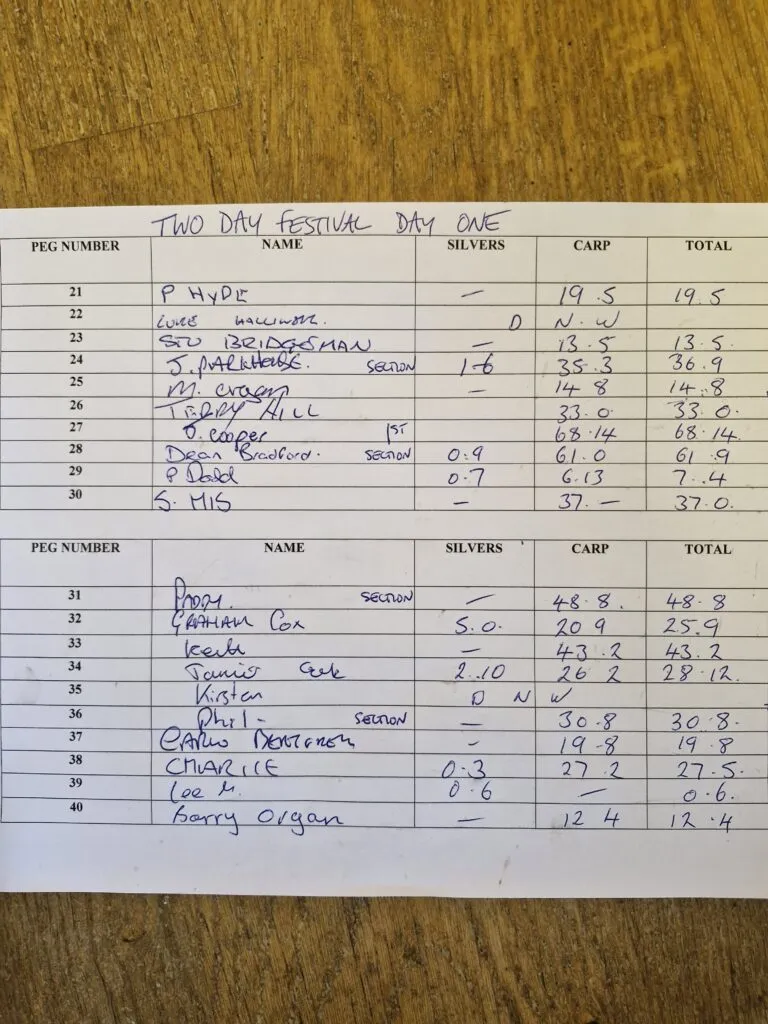 TWO DAY FESTIVAL DAY ONE
PEG NUMBER NAME SILVERS CARP TOTAL
21 P HYDE — 19.5 19.5
22 LUKE D N.W
23 STU BRIDGEMAN — 13.5 13.5.
24 J. PARKHOUSE. SECTION 1-6 35.3 36.9
25 M. — 14 8 14.8
26 TERRY HILL 33.0. 33.0.
27 J. Cooper 1ST 68.14 68.14.
28 Dean Bradford. SECTION 0.9 61.0 61.9
29 P Dodd 0.7 6.13 7..4
30 S. MIS — 37. — 37.0.
PEG NUMBER NAME SILVERS CARP TOTAL
31 SECTION — 48.8. 48.8
32 GRAHAM Cox 5.0. 20 9 25.9
33 Keith — 43.2 43.2
34 2..10 26 2 28.12.
35 Kirsten D N W
36 Phil- SECTION — 30.8 30.8.
37 CARLO - 19-8 19.8
38 CHARLIE 0.3 27.2 27.5.
39 Lee M. 0.6 — 0.6.
40 Barry Organ — 12 4 12.4